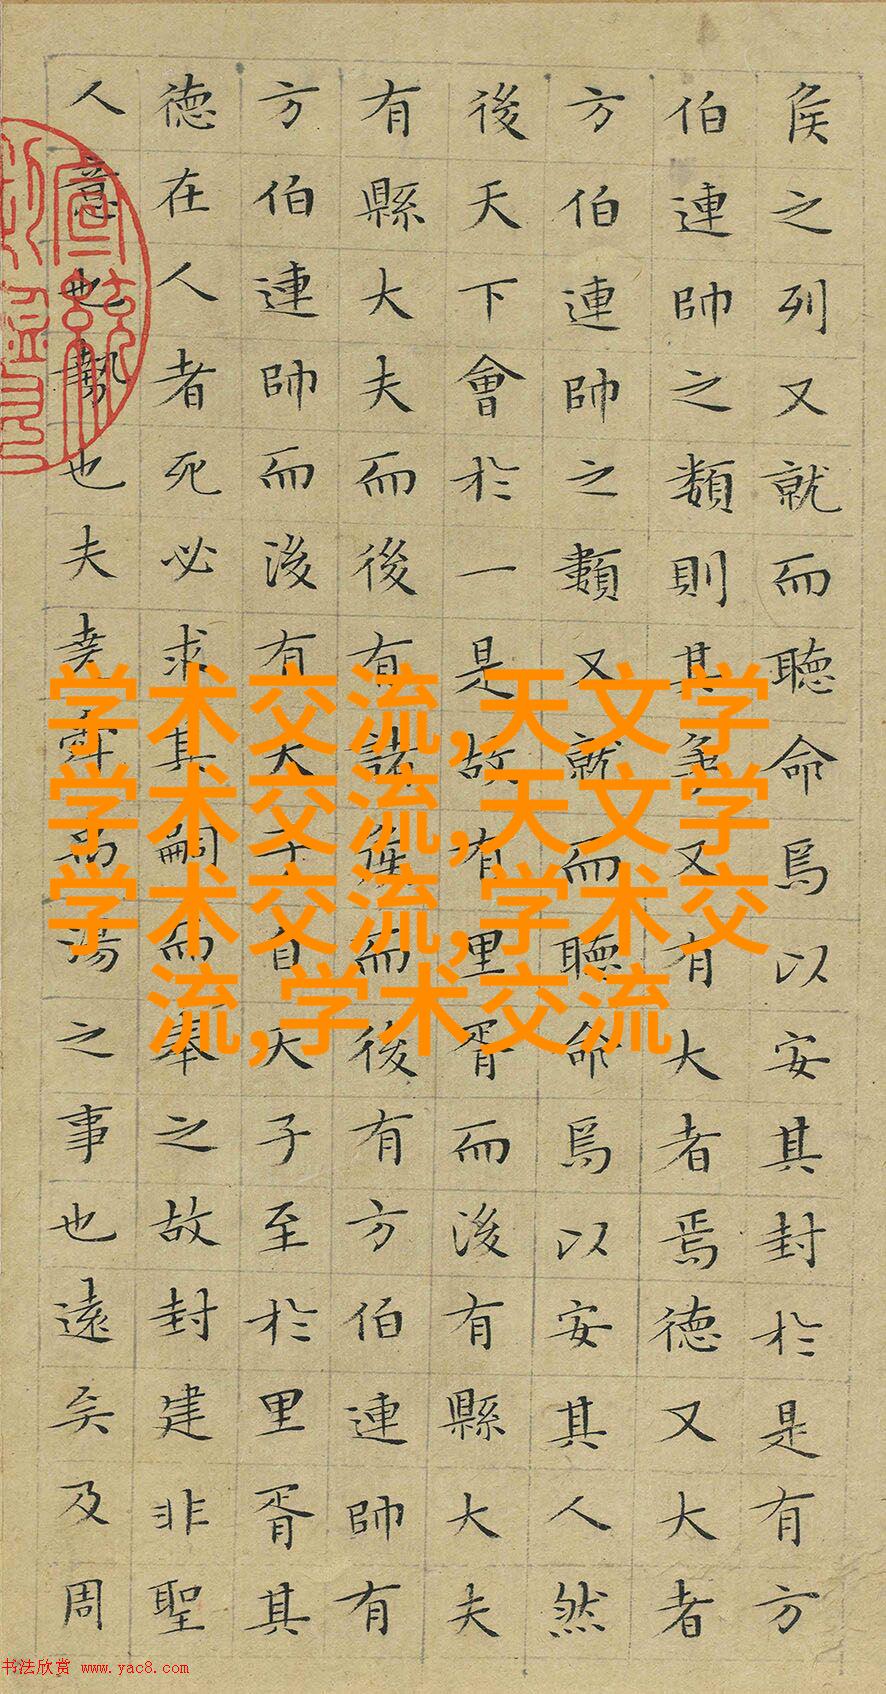 侯之列又就而聽命焉以安其封於是有方
伯連帥之類則其爭又有大者焉德又大者
方伯連帥之類又就而聽命焉以安其人然
後天下會於一是故有里胥而後有縣大夫
有縣大夫而後有諸侯而後有方伯連帥有
方伯連帥而後有天子自天子至於里胥其
德在人者死必求其嗣而奉之故封建非聖
人意也勢也夫堯舜禹湯之事也遠矣及周
学术交流,天文学
学术交流,天文学
学术交流,学术交
流,学术交流
书法欣赏 www.yac8.com